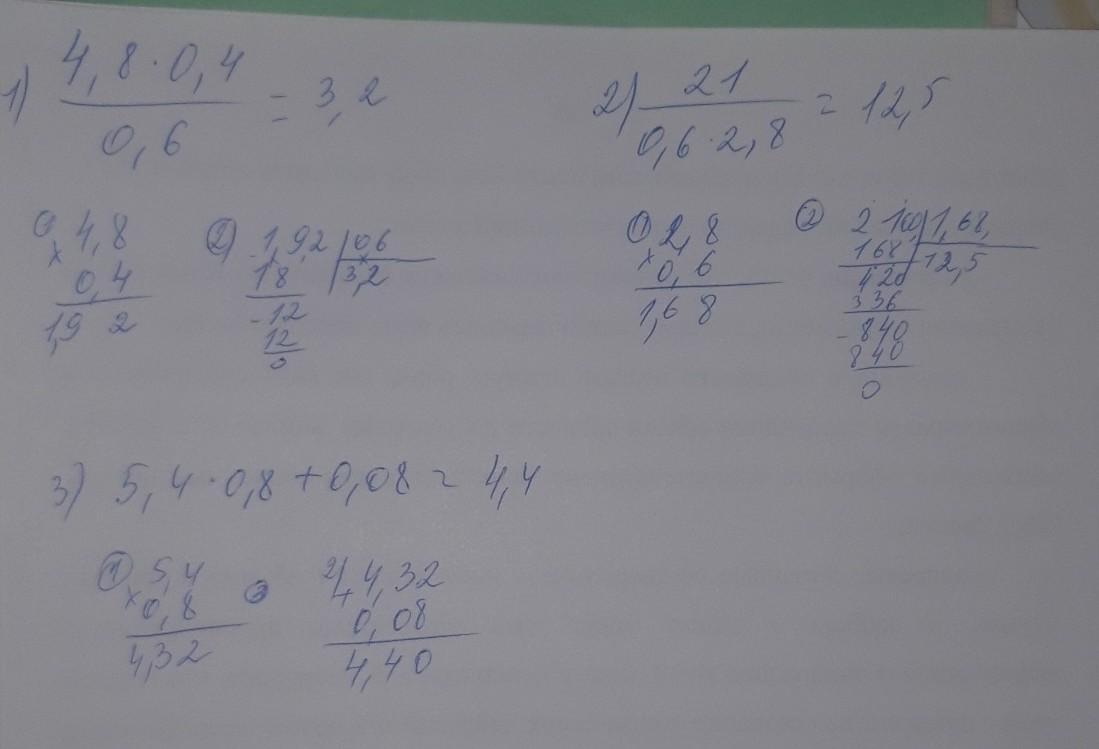 1) 4,8 · 0,4 / 0,6 = 3,2
① 4,8
× 0,4
1,9 2
② - 1,92 | 0,6
18 | 3,2
- 12
12
0
2) 21 / 0,6 · 2,8 = 12,5
① 2,8
× 0,6
1,6 8
② 2 100 | 1,68
168 | 12,5
420
336
- 840
840
0
3) 5,4 · 0,8 + 0,08 = 4,4
① 5,4
× 0,8
4,32
2) 4,32
+ 0,08
4,40